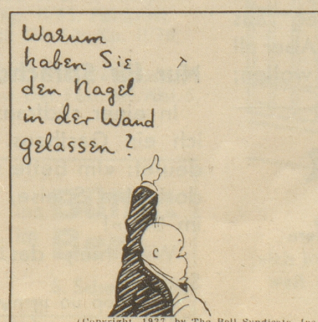 Warum
haben Sie
den Nagel
in der Wand
gelassen?
(Copyright, 1937, by The Bell Syndicate, Inc.